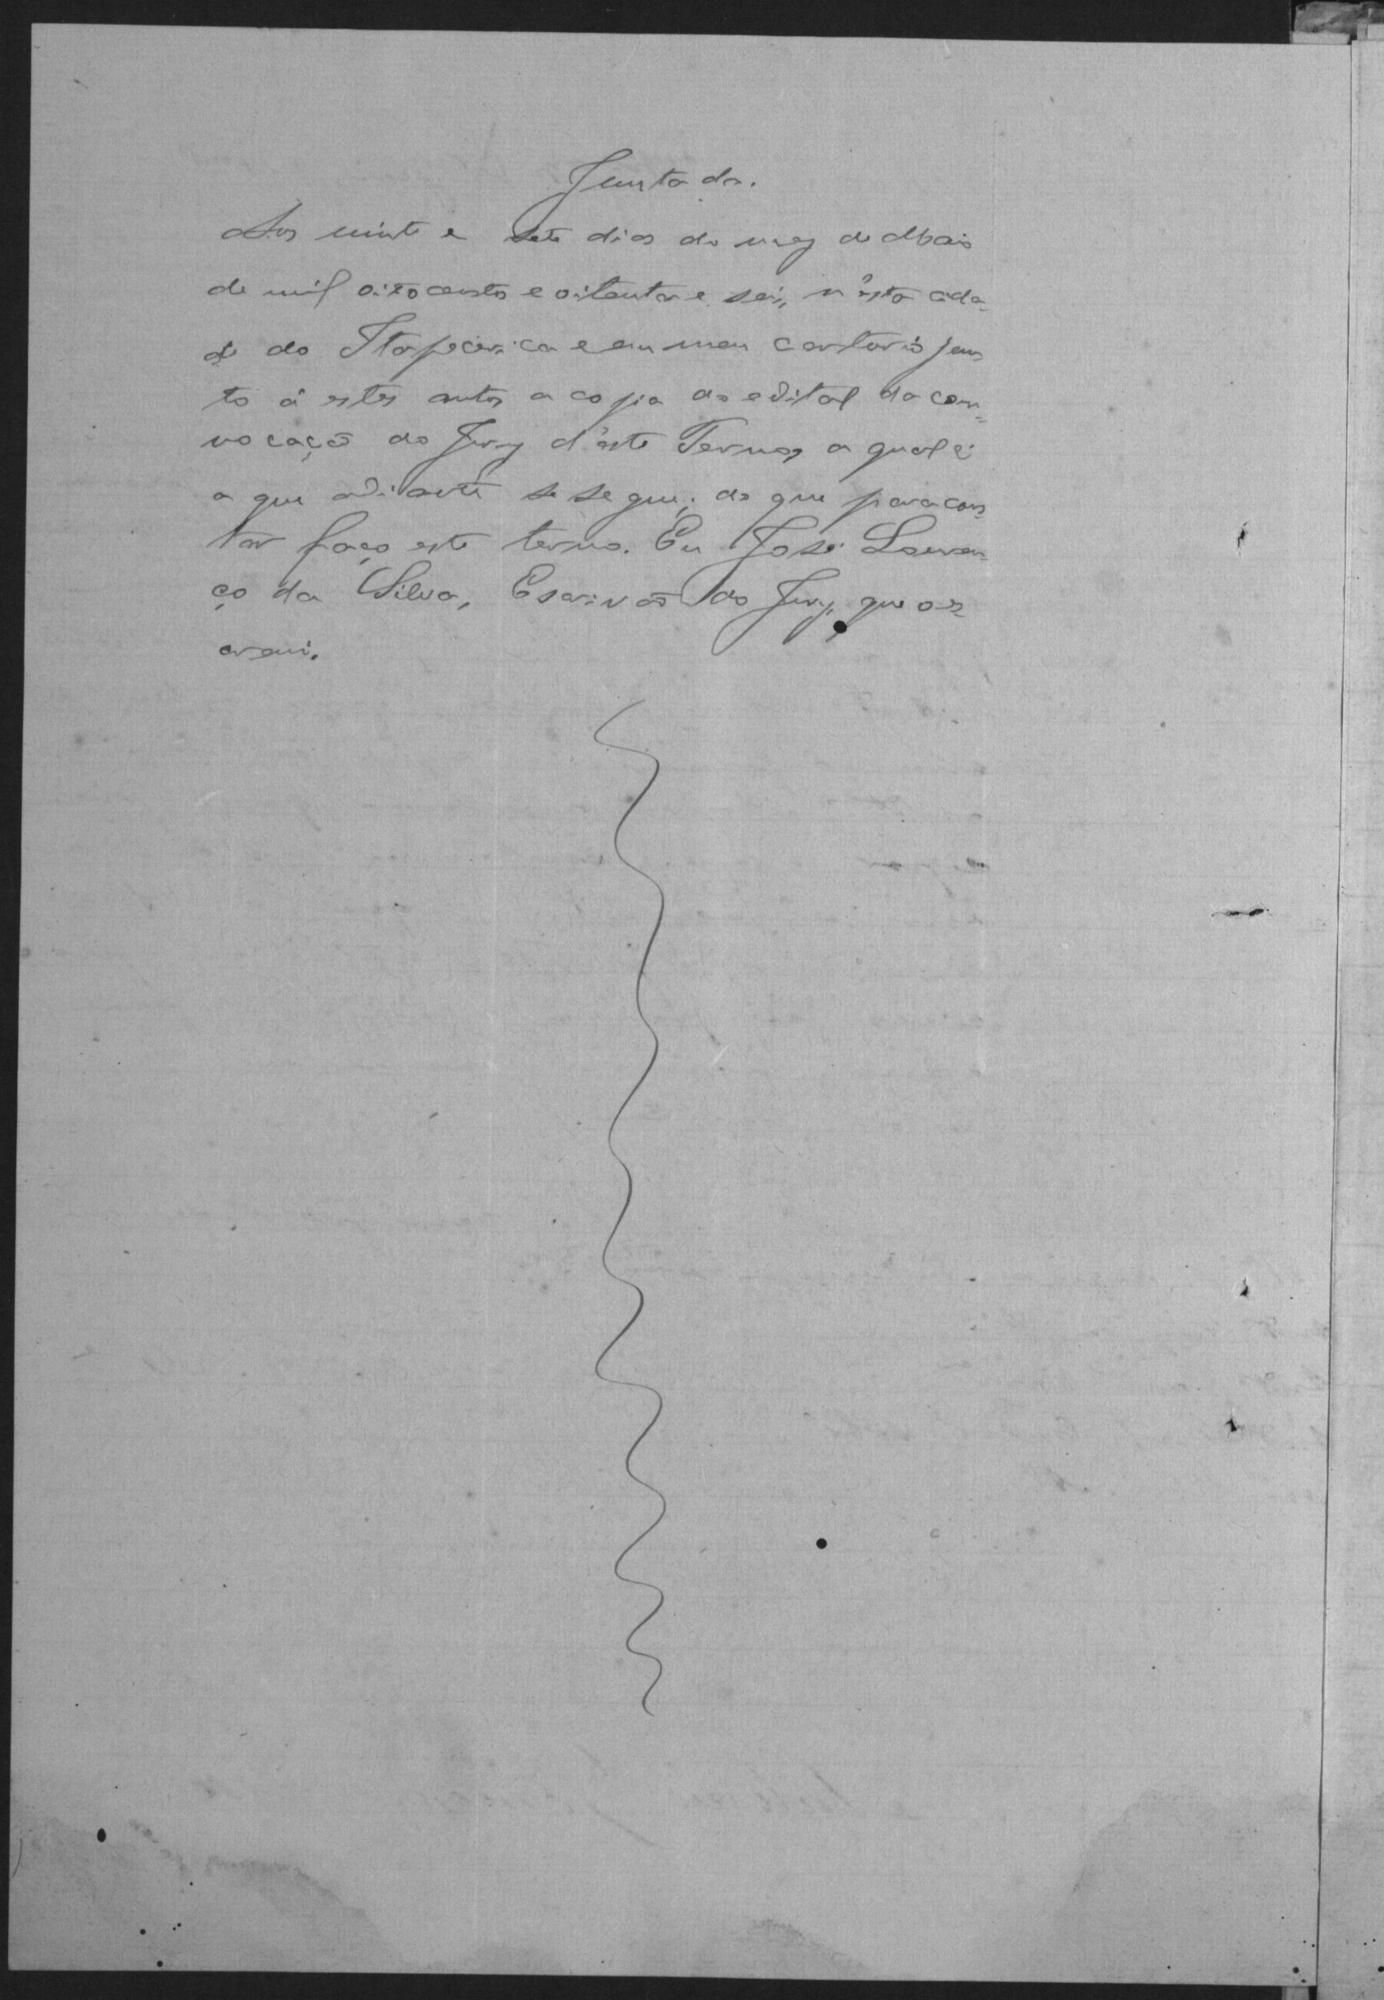 Juntada.
Aos vinte e sete dias do mez de Maio
de mil oitocentos e oitenta e seis, n'esta cida-
de do Itapecerica e em meu cartorio jun
to á estes autos a copia do edital da con-
vocação do Jury d'este Termo, a qual é
a que adiante se segue; do que para cons
tar faço este termo. Eu José Louren-
ço da Silva, Escrivão do Jury, que o es-
crevi.